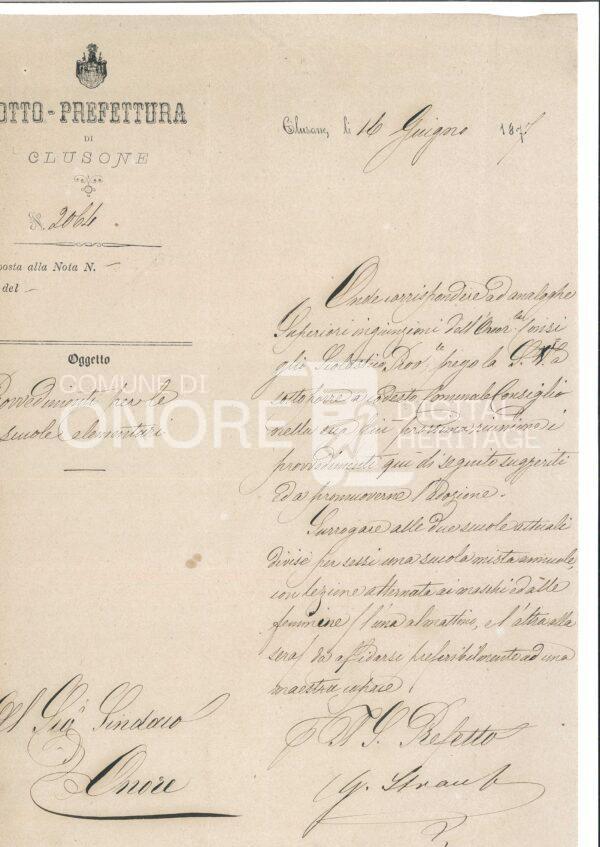 OTTO-PREFETTURA
DI
CLUSONE
N. 2064
posta alla Nota N. –
del –
Oggetto
Provvedimenti per le
scuole elementari
Clusone, li 14 Giugno 187
Onde corrispondere ad analoghe
Superiori ingiunzioni dell'Onor. Consi
glio Scolastico Prov.le prego la S.V. a
sottoporre a codesto Comunale Consiglio
nella sua più prossima riunione i
provvedimenti qui di seguito suggeriti
ed a promuoverne l'adozione.
Surrogare alle due scuole attuali
divise per sessi una scuola mista annuale,
con lezione alternata ai maschi ed alle
femmine (l'una al mattino, e l'altra alla
sera) da affidarsi preferibilmente ad una
maestra capace.
Il S. Prefetto
G. Straub
Al Sig.r Sindaco
Onore
COMUNE DI
ONORE
DIGITAL
HERITAGE